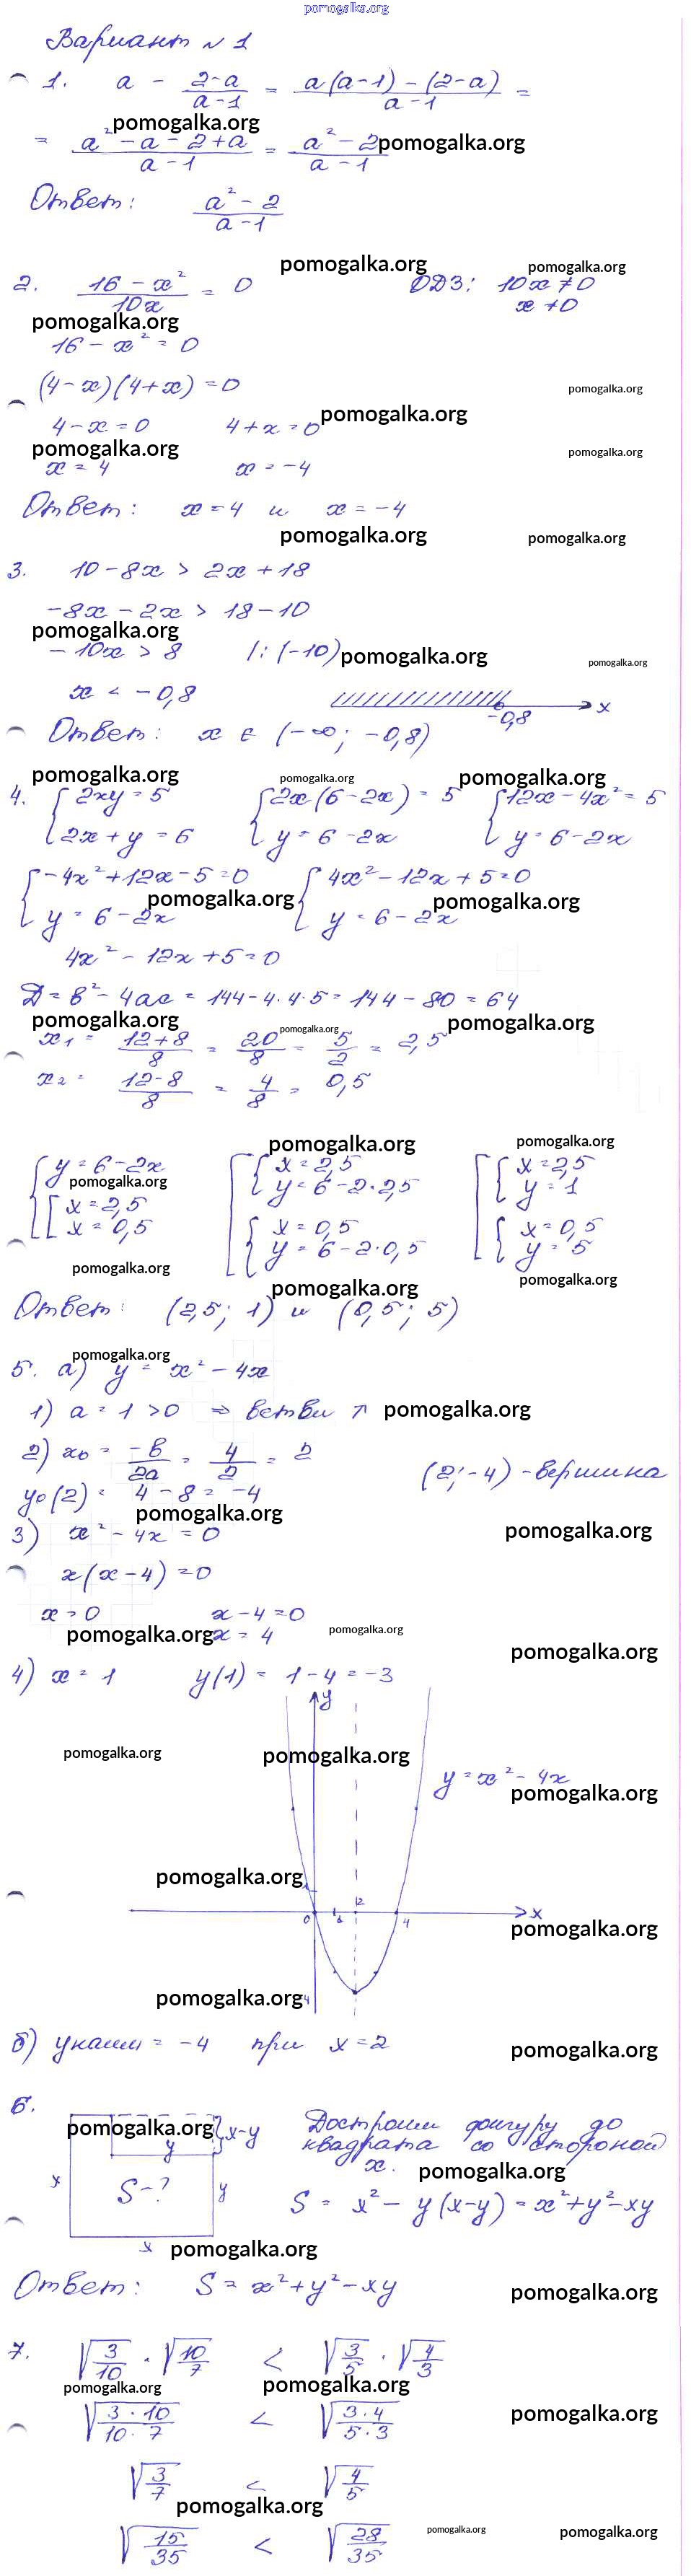 pomogalka.org
Вариант N 1
1. a - (2-a)/(a-1) = (a(a-1)-(2-a))/(a-1) =
pomogalka.org
= (a²-a-2+a)/(a-1) = (a²-2)/(a-1) pomogalka.org
Ответ: (a²-2)/(a-1)
pomogalka.org pomogalka.org
2. (16-x²)/(10x) = 0 ОДЗ: 10x≠0
x≠0
pomogalka.org
16-x²=0
(4-x)(4+x)=0 pomogalka.org
4-x=0 4+x=0 pomogalka.org
pomogalka.org pomogalka.org
x=4 x=-4
Ответ: x=4 и x=-4
pomogalka.org pomogalka.org
3. 10-8x > 2x+18
-8x-2x > 18-10
pomogalka.org
-10x > 8 |:(-10) pomogalka.org pomogalka.org
x < -0,8
-0,8 x
Ответ: x ∈ (-∞; -0,8)
pomogalka.org pomogalka.org pomogalka.org
4. {2xy=5 {2x(6-2x)=5 {12x-4x²=5
{2x+y=6 {y=6-2x {y=6-2x
{-4x²+12x-5=0 {4x²-12x+5=0
pomogalka.org pomogalka.org
{y=6-2x {y=6-2x
4x²-12x+5=0
Д=в²-4ac=144-4·4·5=144-80=64
pomogalka.org pomogalka.org pomogalka.org
x₁= (12+8)/8 = 20/8 = 5/2 = 2,5
x₂= (12-8)/8 = 4/8 = 0,5
pomogalka.org pomogalka.org
{y=6-2x [{x=2,5 [{x=2,5
pomogalka.org
{[x=2,5 {y=6-2·2,5 {y=1
[x=0,5 {x=0,5 {x=0,5
{y=6-2·0,5 {y=5
pomogalka.org pomogalka.org pomogalka.org
Ответ: (2,5; 1) и (0,5; 5)
pomogalka.org
5. а) y=x²-4x
1) a=1>0 ⇒ ветви ↑ pomogalka.org
2) x₀= -в/2a = 4/2 = 2
(2;-4)-вершина
y₀(2)= 4-8=-4
pomogalka.org pomogalka.org
3) x²-4x=0
x(x-4)=0
x=0 x-4=0
pomogalka.org x=4 pomogalka.org
pomogalka.org
4) x=1 y(1)=1-4=-3
y
pomogalka.org pomogalka.org
y=x²-4x
pomogalka.org
pomogalka.org
2
0 4 x
pomogalka.org
pomogalka.org
б) yнаим=-4 при x=2
pomogalka.org
6.
pomogalka.org x-y Достроим фигуру до
y квадрата со стороной
x.
pomogalka.org
x S-? y S=x²-y(x-y)=x²+y²-xy
x pomogalka.org
Ответ: S=x²+y²-xy
pomogalka.org
7. √(3/10)·√(10/7) < √(3/5)·√(4/3)
pomogalka.org pomogalka.org
√((3·10)/(10·7)) < √((3·4)/(5·3)) pomogalka.org
√(3/7) < √(4/5)
pomogalka.org
√(15/35) < √(28/35) pomogalka.org pomogalka.org